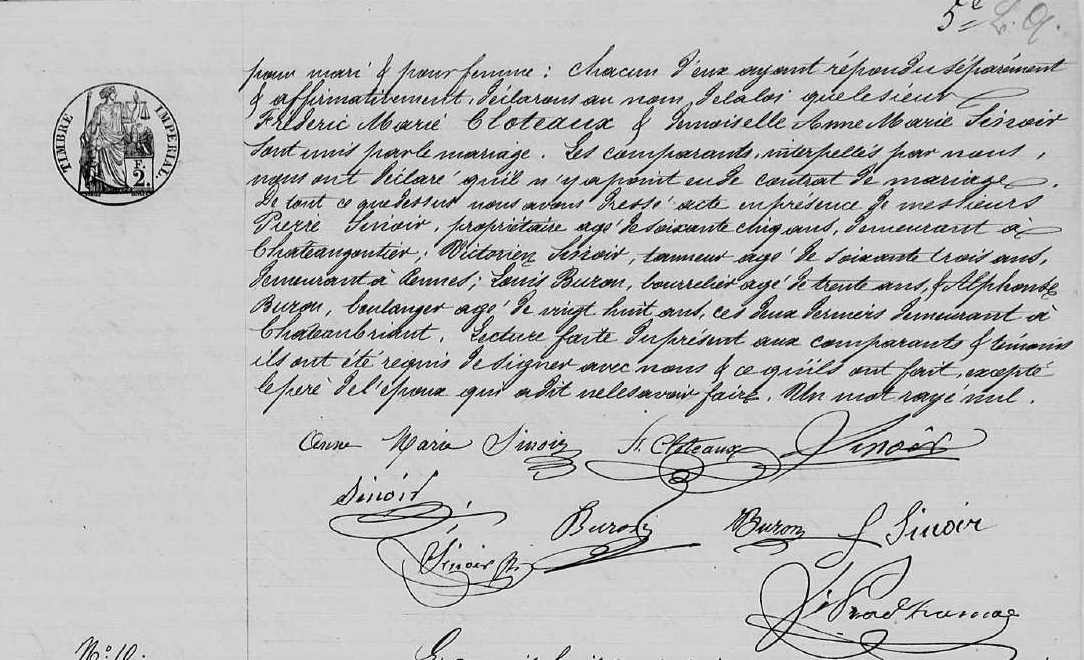 5e
TIMBRE IMPERIAL
F.
2
pour mari & pour femme : Chacun d'eux ayant répondu séparément
& affirmativement, déclarons au nom de la loi que le sieur
Fréderic Marie Cloteaux & Demoiselle Anne Marie Sinoir
Sont unis par le mariage. Les comparants, interpellés par nous,
nous ont déclaré qu'il n'y a point eu de contrat de mariage.
De tout ce que dessus nous avons dressé acte en présence de messieurs
Pierre Sinoir, propriétaire agé de soixante cinq ans, demeurant à
Chateaugontier ; Victorien Sinoir, tanneur agé de soixante trois ans,
demeurant à Rennes ; Louis Buron, bourrelier agé de trente ans, & Alphonse
Buron, boulanger agé de vingt huit ans, ces deux derniers demeurant à
Chateaubriant. Lecture faite du présent aux comparants & témoins
ils ont été requis de signer avec nous & ce qu'ils ont fait, excepté
le père de l'époux qui a dit ne le savoir faire. Un mot rayé nul.
Anne Marie Sinoir F. Cloteaux Sinoir
Sinoir
Buron Buron Sinoir
Sinoir
No. 10.